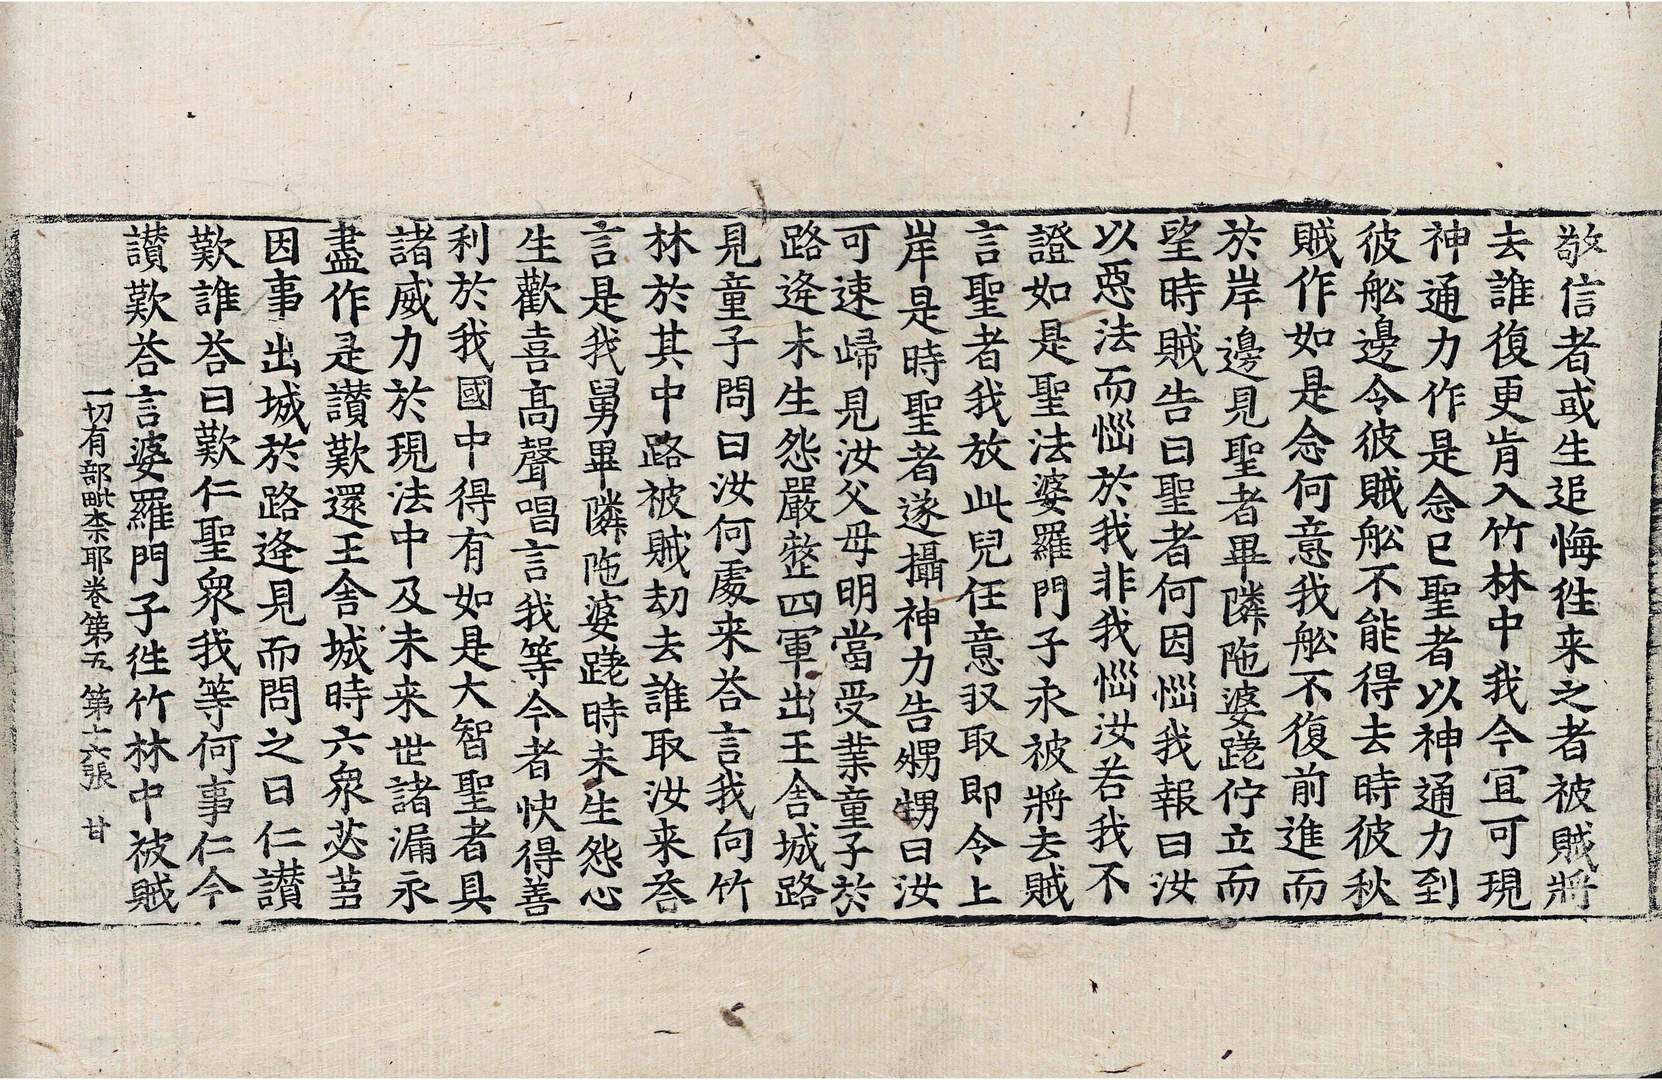 敬信者或生追悔徃来之者被賊將
去誰復更肯入竹林中我今宜可現
神通力作是念已聖者以神通力到
彼舩邊令彼賊舩不能得去時彼秋
賊作如是念何意我舩不復前進而
於岸邊見聖者畢隣陁婆蹉佇立而
望時賊告曰聖者何因惱我報曰汝
以惡法而惱於我非我惱汝若我不
證如是聖法婆羅門子永被將去賊
言聖者我放此兒任意収取即令上
岸是時聖者遂攝神力告甥甥曰汝
可速歸見汝父母明當受業童子於
路逄未生怨嚴整四軍出王舎城路
見童子問曰汝何處来荅言我向竹
林於其中路被賊刼去誰取汝来荅
言是我舅畢隣陁婆蹉時未生怨心
生歡喜高聲唱言我等今者快得善
利於我國中得有如是大智聖者具
諸威力於現法中及未来世諸漏永
盡作是讃歎還王舎城時六衆苾芻
因事出城於路逄見而問之曰仁讃
歎誰荅曰歎仁聖衆我等何事仁今
讃歎荅言婆羅門子徃竹林中被賊
一切有部毗柰耶卷第五 第十六張 甘